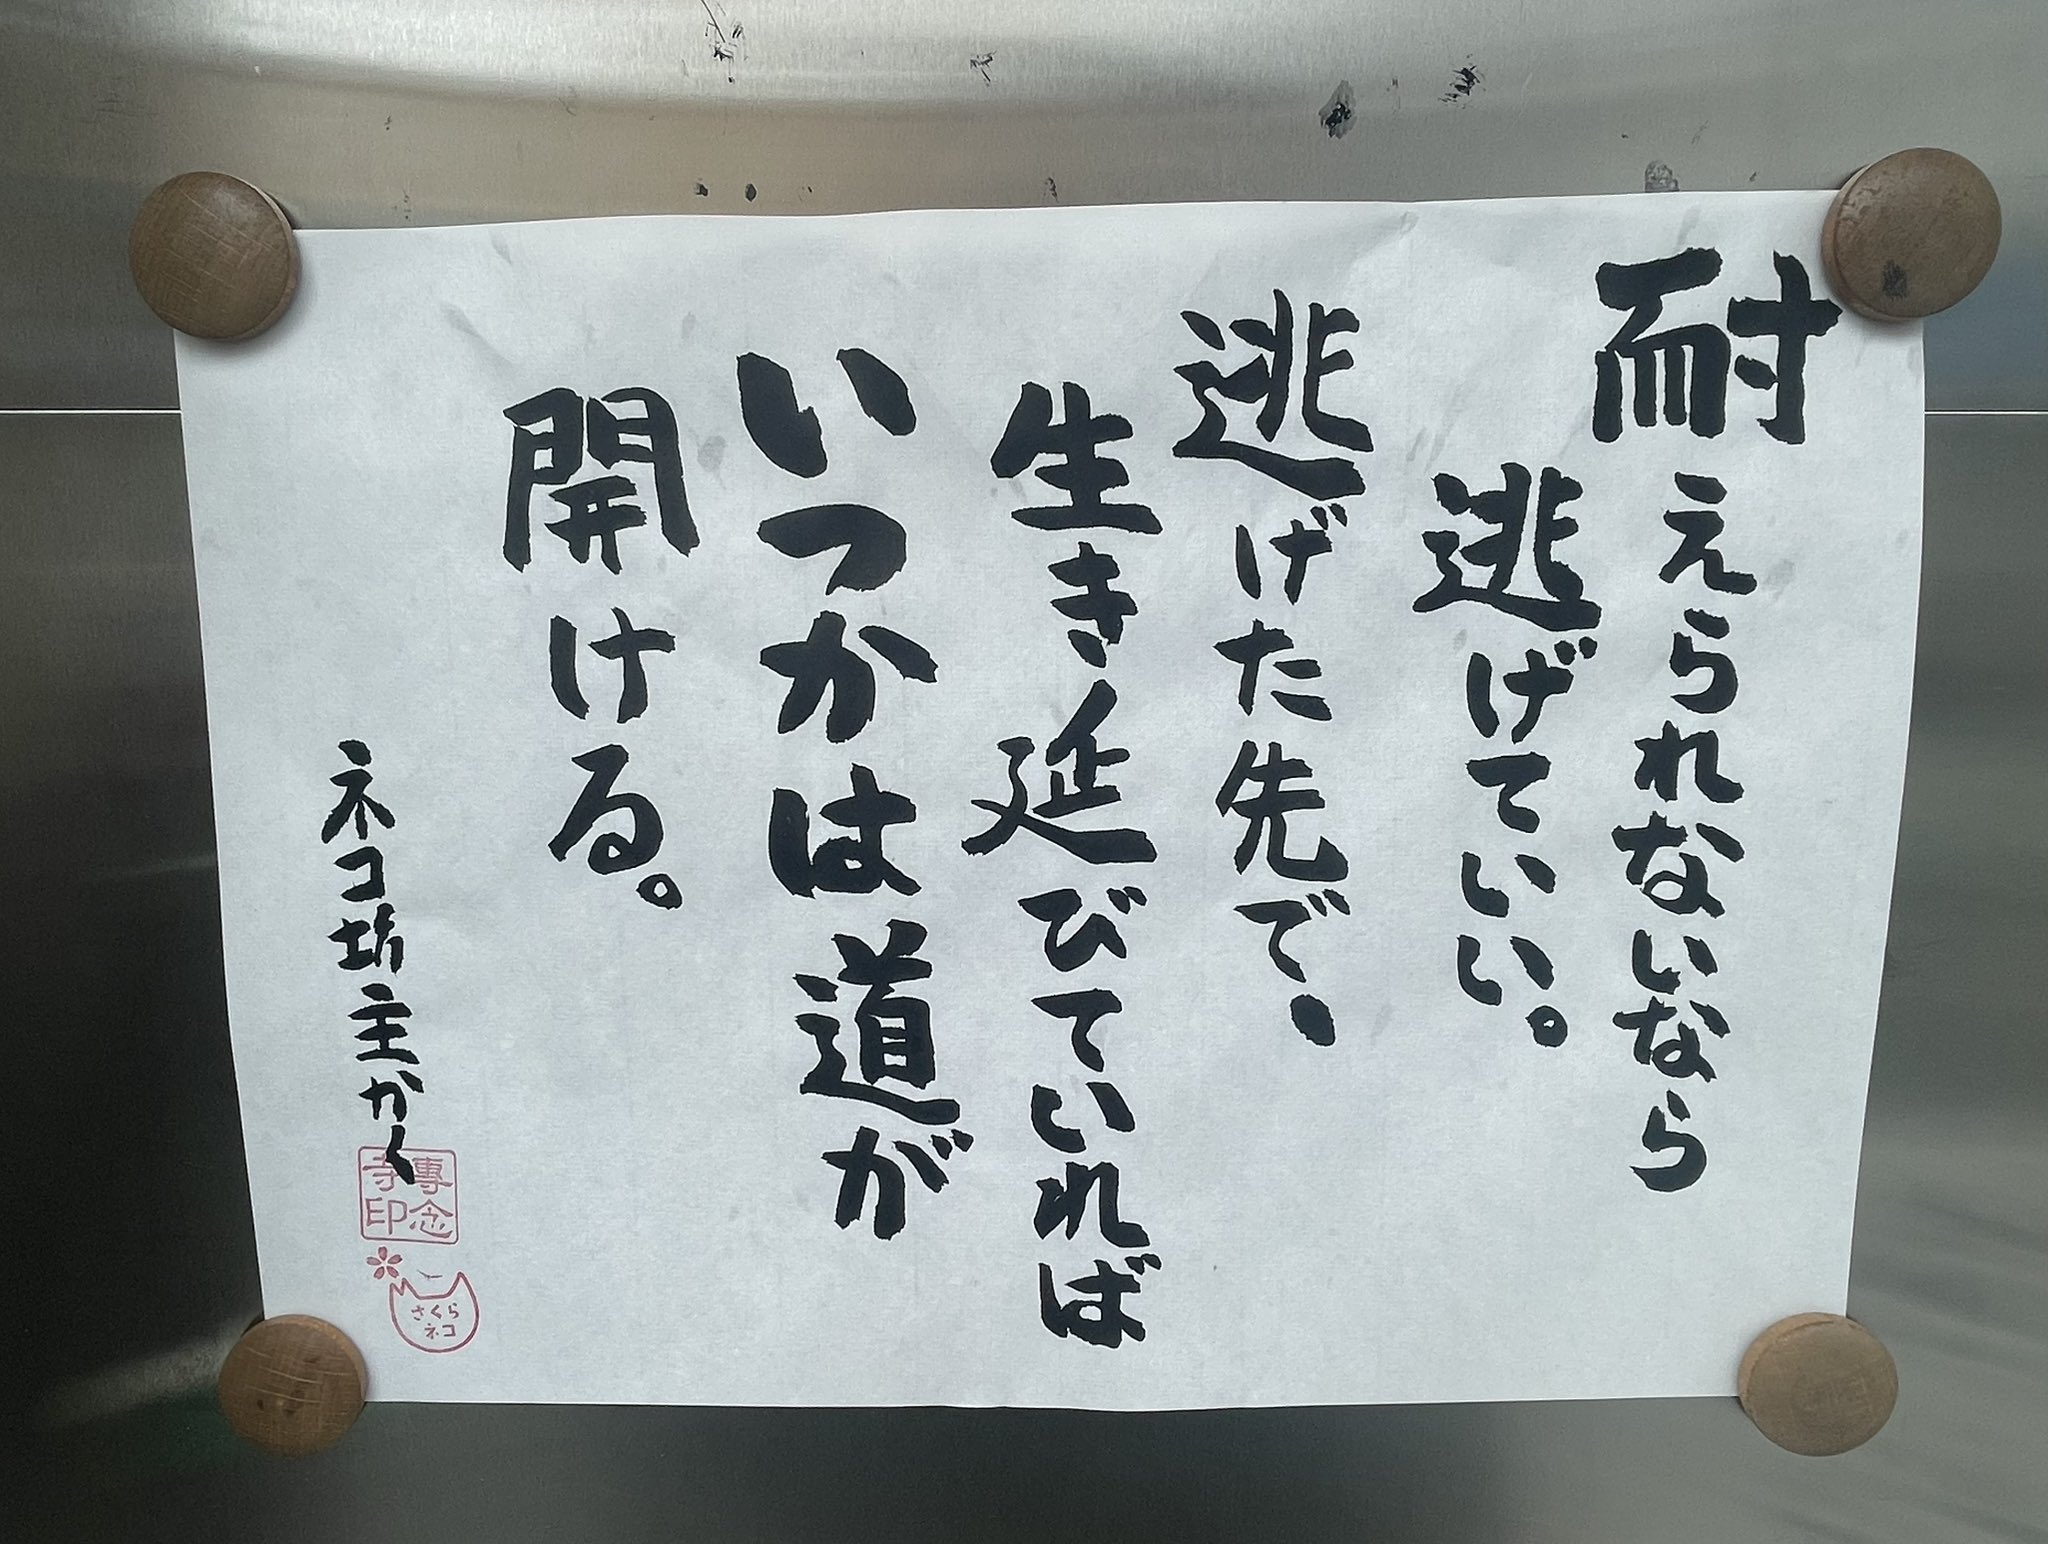 耐えられないなら
逃げていい。
逃げた先で、
生き延びていれば
いつかは道が
開ける。
ネコ坊主かく
専念
寺印
さくら
ネコ